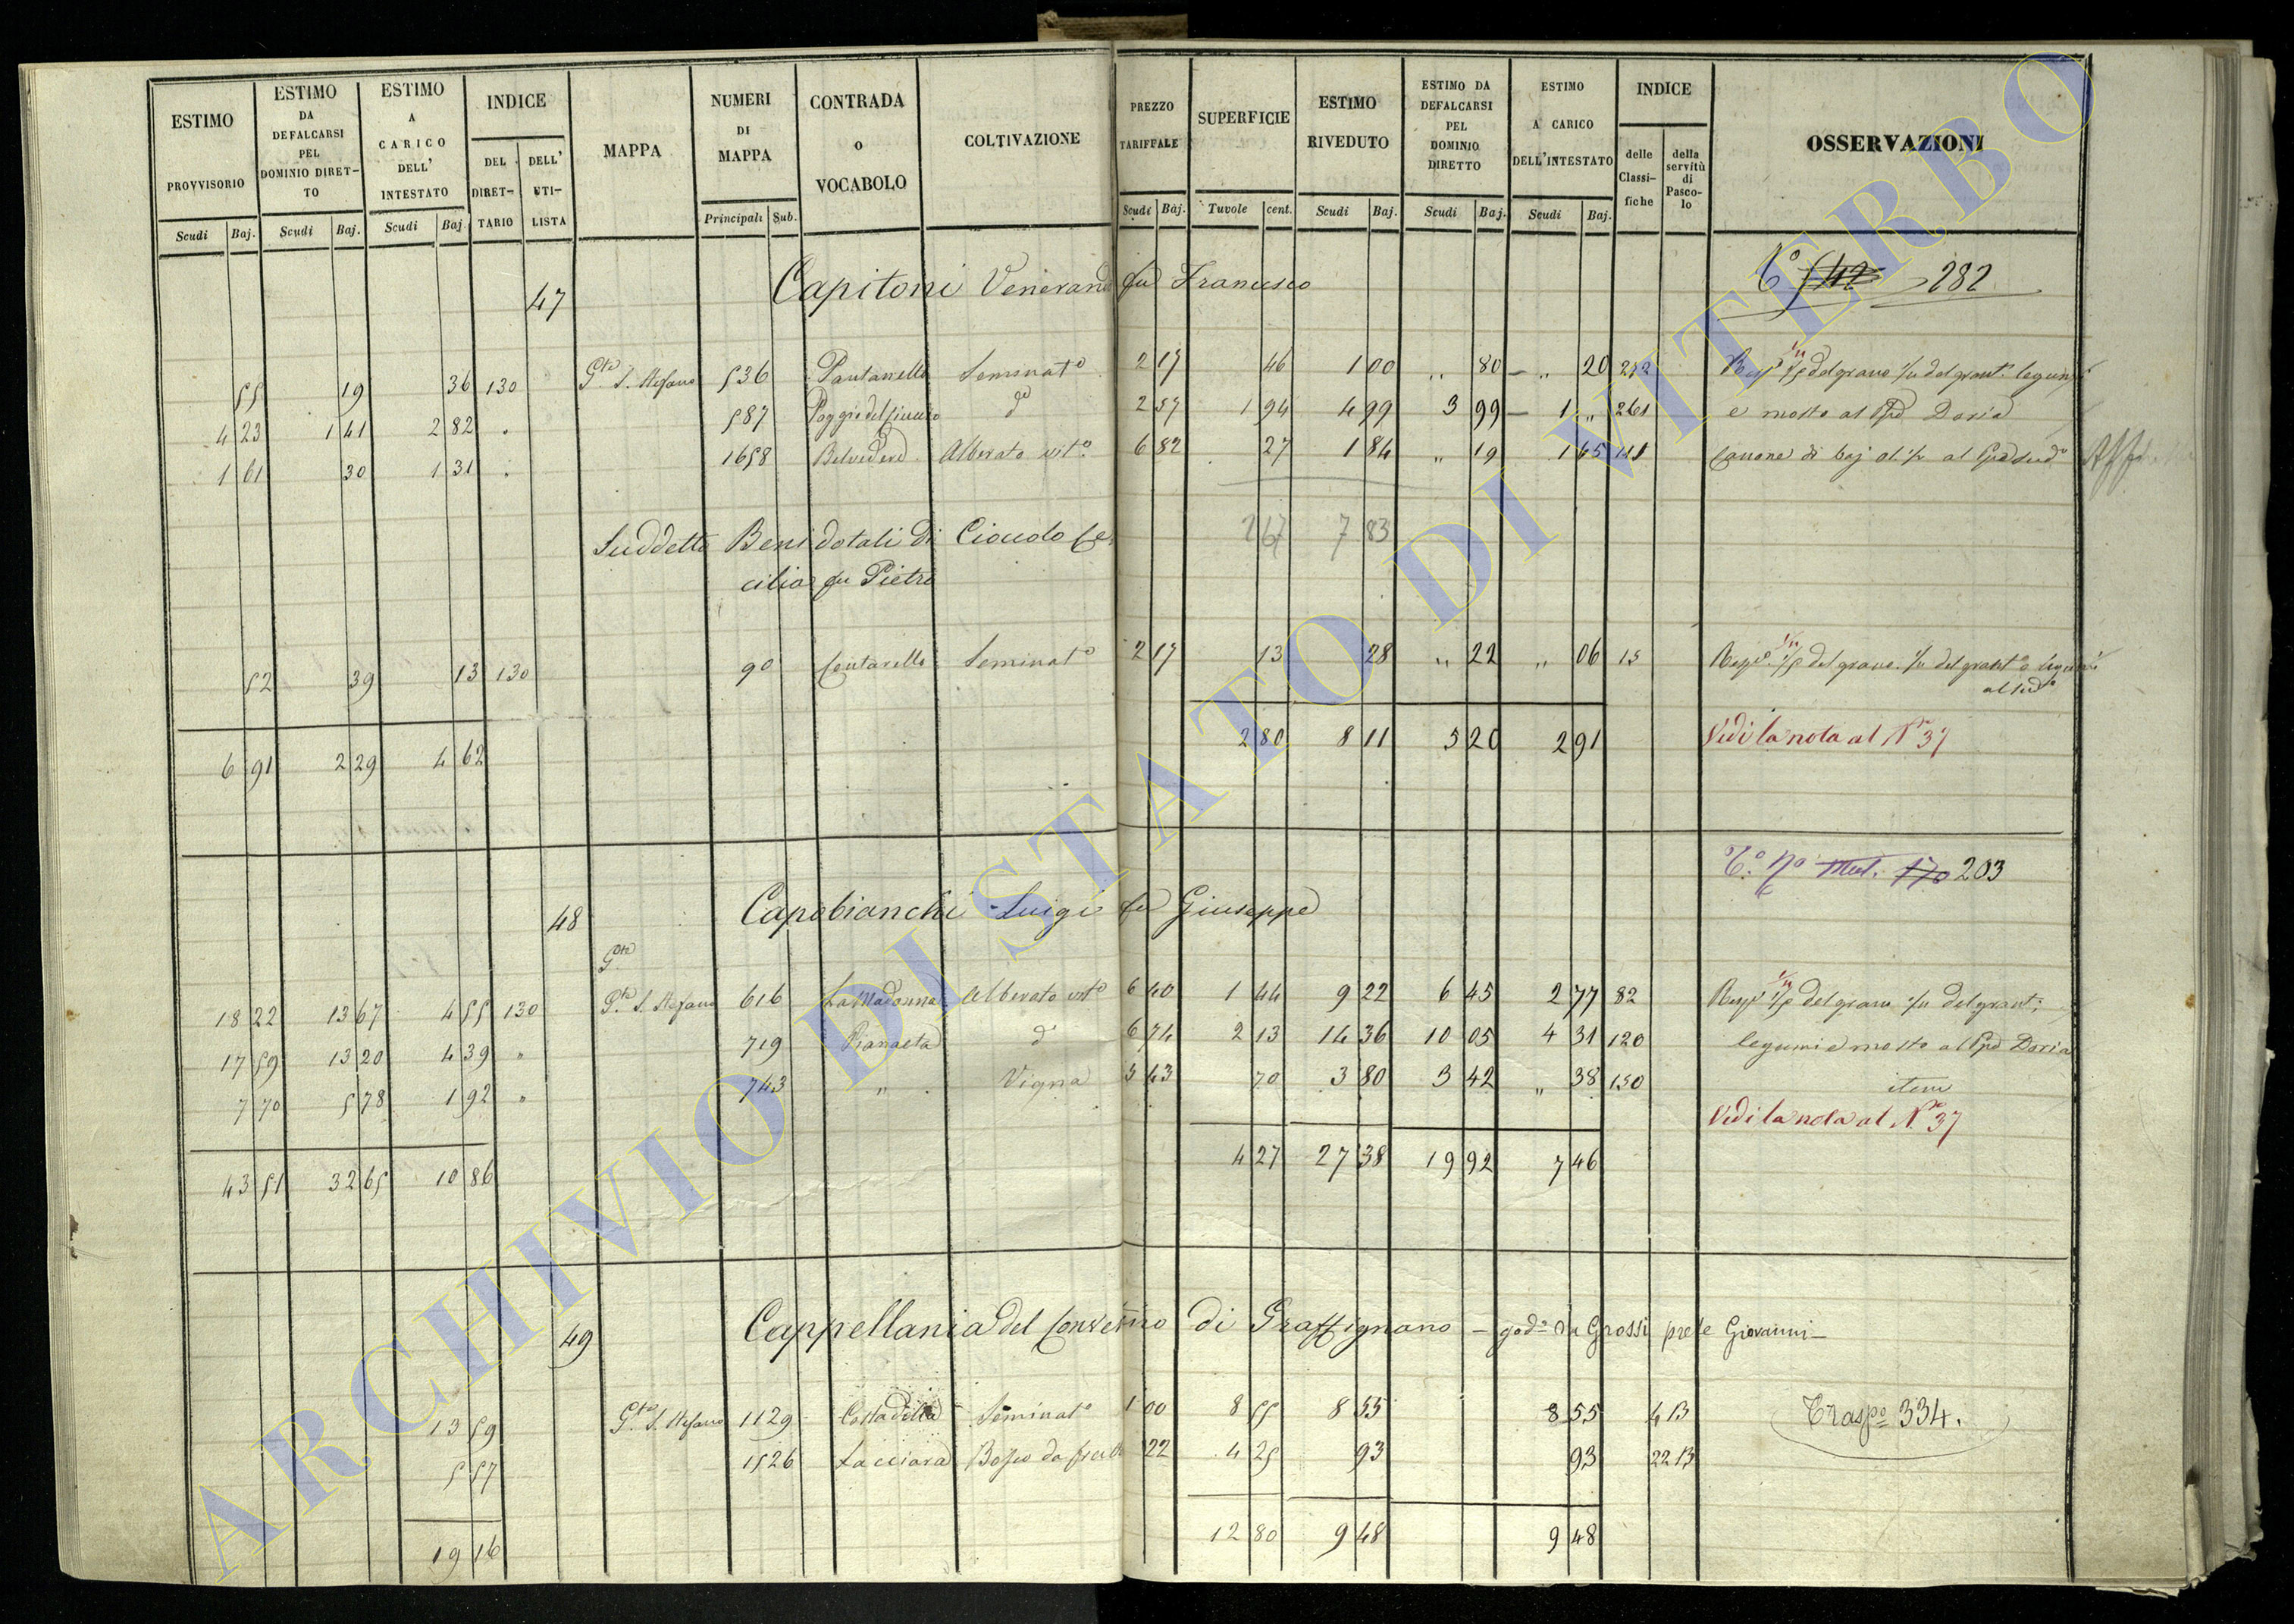 ESTIMO PROVVISORIO | ESTIMO DA DEFALCARSI PEL DOMINIO DIRET-TO | ESTIMO A CARICO DELL' INTESTATO | INDICE DEL DIRET-TARIO | DELL' UTI-LISTA | MAPPA | NUMERI DI MAPPA | CONTRADA O VOCABOLO | COLTIVAZIONE | PREZZO TARIFFALE | SUPERFICIE | ESTIMO RIVEDUTO | ESTIMO DA DEFALCARSI PEL DOMINIO DIRETTO | ESTIMO A CARICO DELL'INTESTATO | INDICE delle Classi-fiche | della servitù di Pasco-lo | OSSERVAZIONI
Scudi Baj. | Scudi Baj. | Scudi Baj. | Principali Sub. | Scudi Baj. | Tavole cent. | Scudi Baj. | Scudi Baj. | Scudi Baj.
47 Capitoni Venerand fu Francesco 282
55 | 19 | 36 | 130 | Gte S. Stefano | 536 | Pantanella | Seminato | 2 17 | 46 | 1 00 | " 80 | " 20 | 272 | 1/5 del grano del grant° legumi
4 23 | 1 41 | 2 82 | " | 587 | Poggio del | do | 2 57 | 1 94 | 4 99 | 3 99 | 1 " | 261 | e mosto al Ppe Doria
1 61 | 30 | 1 31 | " | 1658 | Belvedere | Alberato vito | 6 82 | 27 | 1 84 | " 19 | 1 65 | 141 | Canone di baj
2 67 | 7 83
Suddetto Beni dotali di Cioccolo Ce
cilia fu Pietro
52 | 39 | 13 | 130 | 90 | Centarella | Seminato | 2 17 | 13 | 28 | " 22 | " 06 | 15 | 1/5 del grano del grant° e legumi
al sudo
6 91 | 2 29 | 4 62 | 2 80 | 8 11 | 5 20 | 2 91 | Vedi la nota al No 37
To No Mut. 170 203
48 Capobianchi Luigi fu Giuseppe
Gte
18 22 | 13 67 | 4 55 | 130 | Gte S. Stefano | 616 | La Madonna | Alberato vito | 6 40 | 1 44 | 9 22 | 6 45 | 2 77 | 82 | 1/5 del grano del grant:
17 59 | 13 20 | 4 39 | " | 719 | Pianaeta | do | 6 74 | 2 13 | 14 36 | 10 05 | 4 31 | 120 | legumi e mosto al Ppe Doria
7 70 | 5 78 | 1 92 | " | 743 | " | Vigna | 5 43 | 70 | 3 80 | 3 42 | " 38 | 150 | item
Vedi la nota al No 37
43 51 | 32 65 | 10 86 | 4 27 | 27 38 | 19 92 | 7 46
49 Cappellania del di Graffignano – godo da Grossi prete Giovanni –
13 59 | Gte S. Stefano | 1129 | Costadella | Seminato | 1 00 | 8 55 | 8 55 | 8 55 | 4 13 | Traspo 334.
5 57 | 1526 | Lacciara | Bosco da | 22 | 4 25 | 93 | 93 | 22 13
19 16 | 12 80 | 9 48 | 9 48
ARCHIVIO DI STATO DI VITERBO